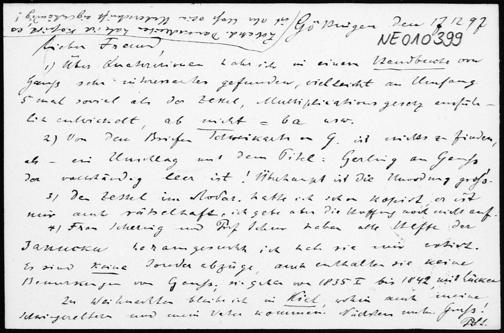 Göttingen den 17.12.97
NE010399
Lieber Freund,
1) Über Quaternionen habe ich in einem Handbuche von
Gauß sehr interessantes gefunden, vielleicht an Umfang
5 mal soviel als der Zettel, Multiplikationsgesetz ausführ-
lich entwickelt, ab nicht = ba usw.
2) Von den Briefen Schweikarts an G. ist nichts zu finden,
als – ein Umschlag mit dem Titel: Gerling an Gauß
der vollständig leer ist! Überhaupt ist die Unordnung groß.
3) Den Zettel im hatte ich schon kopiert, er ist
mir auch rätselhaft, ich gebe aber die Hoffnung noch nicht auf.
4) Frau Schering und Prof Schur haben alle Hefte der
herausgesucht ich hab sie mir notirt.
Es sind keine Sonderabzüge, auch enthalten sie keine
Bemerkungen von Gauß; sie gehen von 1835 bis 1842 mit Lücken
Zu Weihnachten bleibe ich in Kiel, wohin auch meine
Schwiegereltern und mein Vater kommen. Nächstens mehr Gruß!